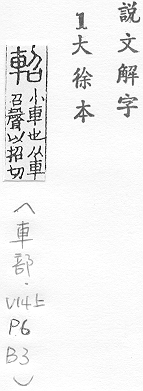 説文解字
1大徐本
軺 小車也从車
召聲以招切
(車部.V14上P6B3)